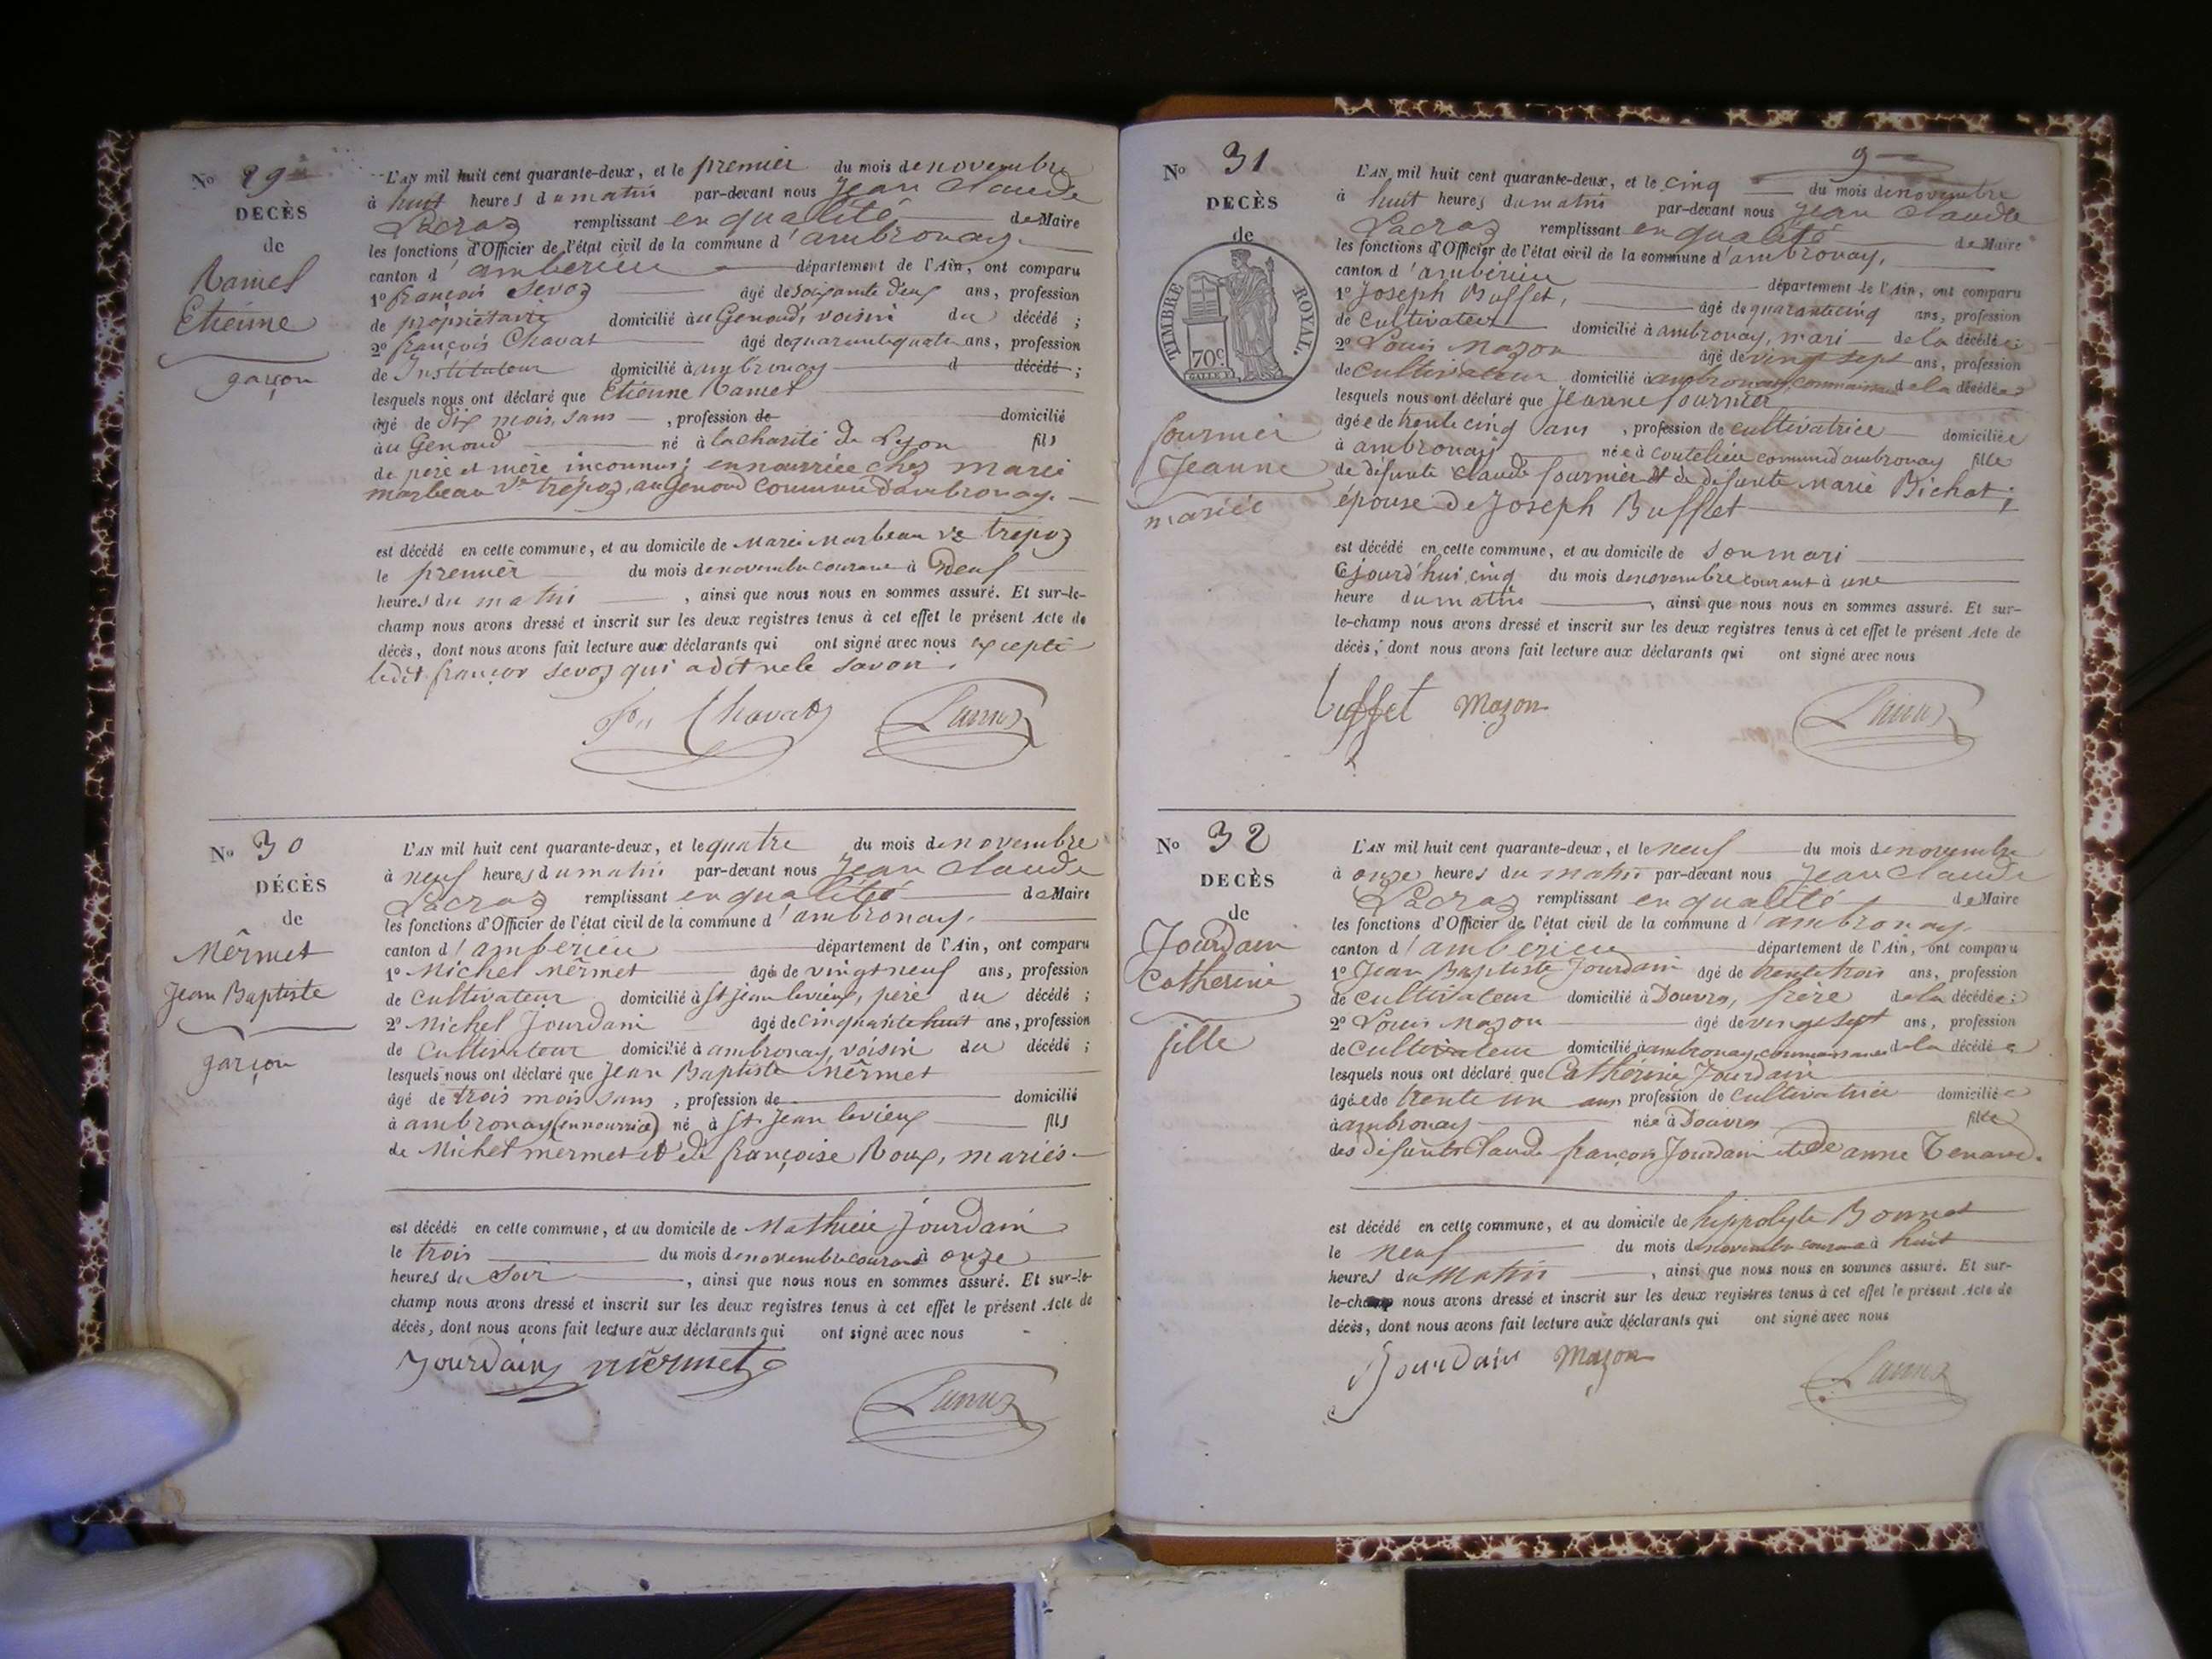 No 29
DECÈS
de
Ramel
Etienne
garçon
L'AN mil huit cent quarante-deux, et le premier du mois de novembre
à huit heures du matin par-devant nous Jean Claude
Lacroz remplissant en qualité de Maire
les fonctions d'Officier de l'état civil de la commune d'ambronay
canton d'amberieu département de l'Ain, ont comparu
1º françois Sevoz âgé de soixante deux ans, profession
de propriétaire domicilié au Genoud, voisin du décédé ;
2º françois Chavat âgé de quarante quatre ans, profession
de Instituteur domicilié à ambronay d décédé ;
lesquels nous ont déclaré que Etienne Ramel
âgé de dix mois, sans , profession de domicilié
à au Genoud né à la charité de Lyon fils
de père et mère inconnus ; en nourrice chez Marie
marbeau Ve trepoz, au Genoud commune d'ambronay.
est décédé en cette commune, et au domicile de Marie Marbeau Ve trepoz
le premier du mois de novembre courant à deux
heures du matin , ainsi que nous nous en sommes assuré. Et sur-le-
champ nous avons dressé et inscrit sur les deux registres tenus à cet effet le présent Acte de
décès, dont nous avons fait lecture aux déclarants qui ont signé avec nous excepté
ledit françois Sevoz qui a dit ne le savoir.
Chavat Lacroz
No 30
DÉCÈS
de
Mêrmet
Jean Baptiste
garçon
L'AN mil huit cent quarante-deux, et le quatre du mois de novembre
à neuf heures du matin par-devant nous Jean Claude
Lacroz remplissant en qualité de Maire
les fonctions d'Officier de l'état civil de la commune d'ambronay.
canton d'amberieu département de l'Ain, ont comparu
1º Michel Mêrmet âgé de vingt neuf ans, profession
de cultivateur domicilié à St jean levieux, père du décédé ;
2º Michel Jourdain âgé de cinquante huit ans, profession
de Cultivateur domicilié à ambronay, voisin du décédé ;
lesquels nous ont déclaré que Jean Baptiste Mêrmet
âgé de trois mois sans , profession de domicilié
à ambronay (en nourrice) né à St Jean levieux fils
de Michel mermet et de françoise Roux, mariés
est décédé en cette commune, et au domicile de Mathieu Jourdain
le trois du mois de novembre courant à onze
heures du soir , ainsi que nous nous en sommes assuré. Et sur-le-
champ nous avons dressé et inscrit sur les deux registres tenus à cet effet le présent Acte de
décès, dont nous avons fait lecture aux déclarants qui ont signé avec nous
Jourdain mêrmet
Lacroz
9
No 31
DECÈS
de
TIMBRE ROYAL.
70c
fournier
Jeanne
mariée
L'AN mil huit cent quarante-deux, et le cinq du mois de novembre
à huit heures du matin par-devant nous Jean Claude
Lacroz remplissant en qualité de Maire
les fonctions d'Officier de l'état civil de la commune d'ambronay,
canton d'ambérieu département de l'Ain, ont comparu
1º Joseph Buffet, âgé de quarante cinq ans, profession
de cultivateur domicilié à ambronay, mari de la décédée ;
2º Louis Mazon âgé de vingt sept ans, profession
de cultivateur domicilié à ambronay, connaissance de la décédée
lesquels nous ont déclaré que Jeanne fournier
âgée de trente cinq ans , profession de cultivatrice domiciliée
à ambronay née à coutelieu commune d'ambronay fille
de défunte Claude fournier et de défunte Marie Bichat ;
épouse de Joseph Buffet
est décédé en cette commune, et au domicile de son mari
cejourd'hui cinq du mois de novembre courant à une
heure du matin , ainsi que nous nous en sommes assuré. Et sur-
le-champ nous avons dressé et inscrit sur les deux registres tenus à cet effet le présent Acte de
décès, dont nous avons fait lecture aux déclarants qui ont signé avec nous
buffet Mazon Lacroz
No 32
DECÈS
de
Jourdain
Catherine
fille
L'AN mil huit cent quarante-deux, et le neuf du mois de novembre
à onze heures du matin par-devant nous Jean Claude
Lacroz remplissant en qualité de Maire
les fonctions d'Officier de l'état civil de la commune d'ambronay.
canton d'amberieu département de l'Ain, ont comparu
1º Jean Baptiste Jourdain âgé de trente trois ans, profession
de cultivateur domicilié à Douvres, frère de la décédée ;
2º Louis Mazon âgé de vingt sept ans, profession
de cultivateur domicilié à ambronay, connaissance de la décédée
lesquels nous ont déclaré que Catherine Jourdain
âgée de trente un ans, profession de cultivatrice domiciliée
à ambronay née à Douvres fille
des défunts Claude françois Jourdain et de anne Tenand.
est décédé en cette commune, et au domicile de hippolyte Bonnet
le neuf du mois de novembre courant à huit
heures du Matin , ainsi que nous nous en sommes assuré. Et sur-
le-champ nous avons dressé et inscrit sur les deux registres tenus à cet effet le présent Acte de
décès, dont nous avons fait lecture aux déclarants qui ont signé avec nous
Jourdain Mazon
Lacroz